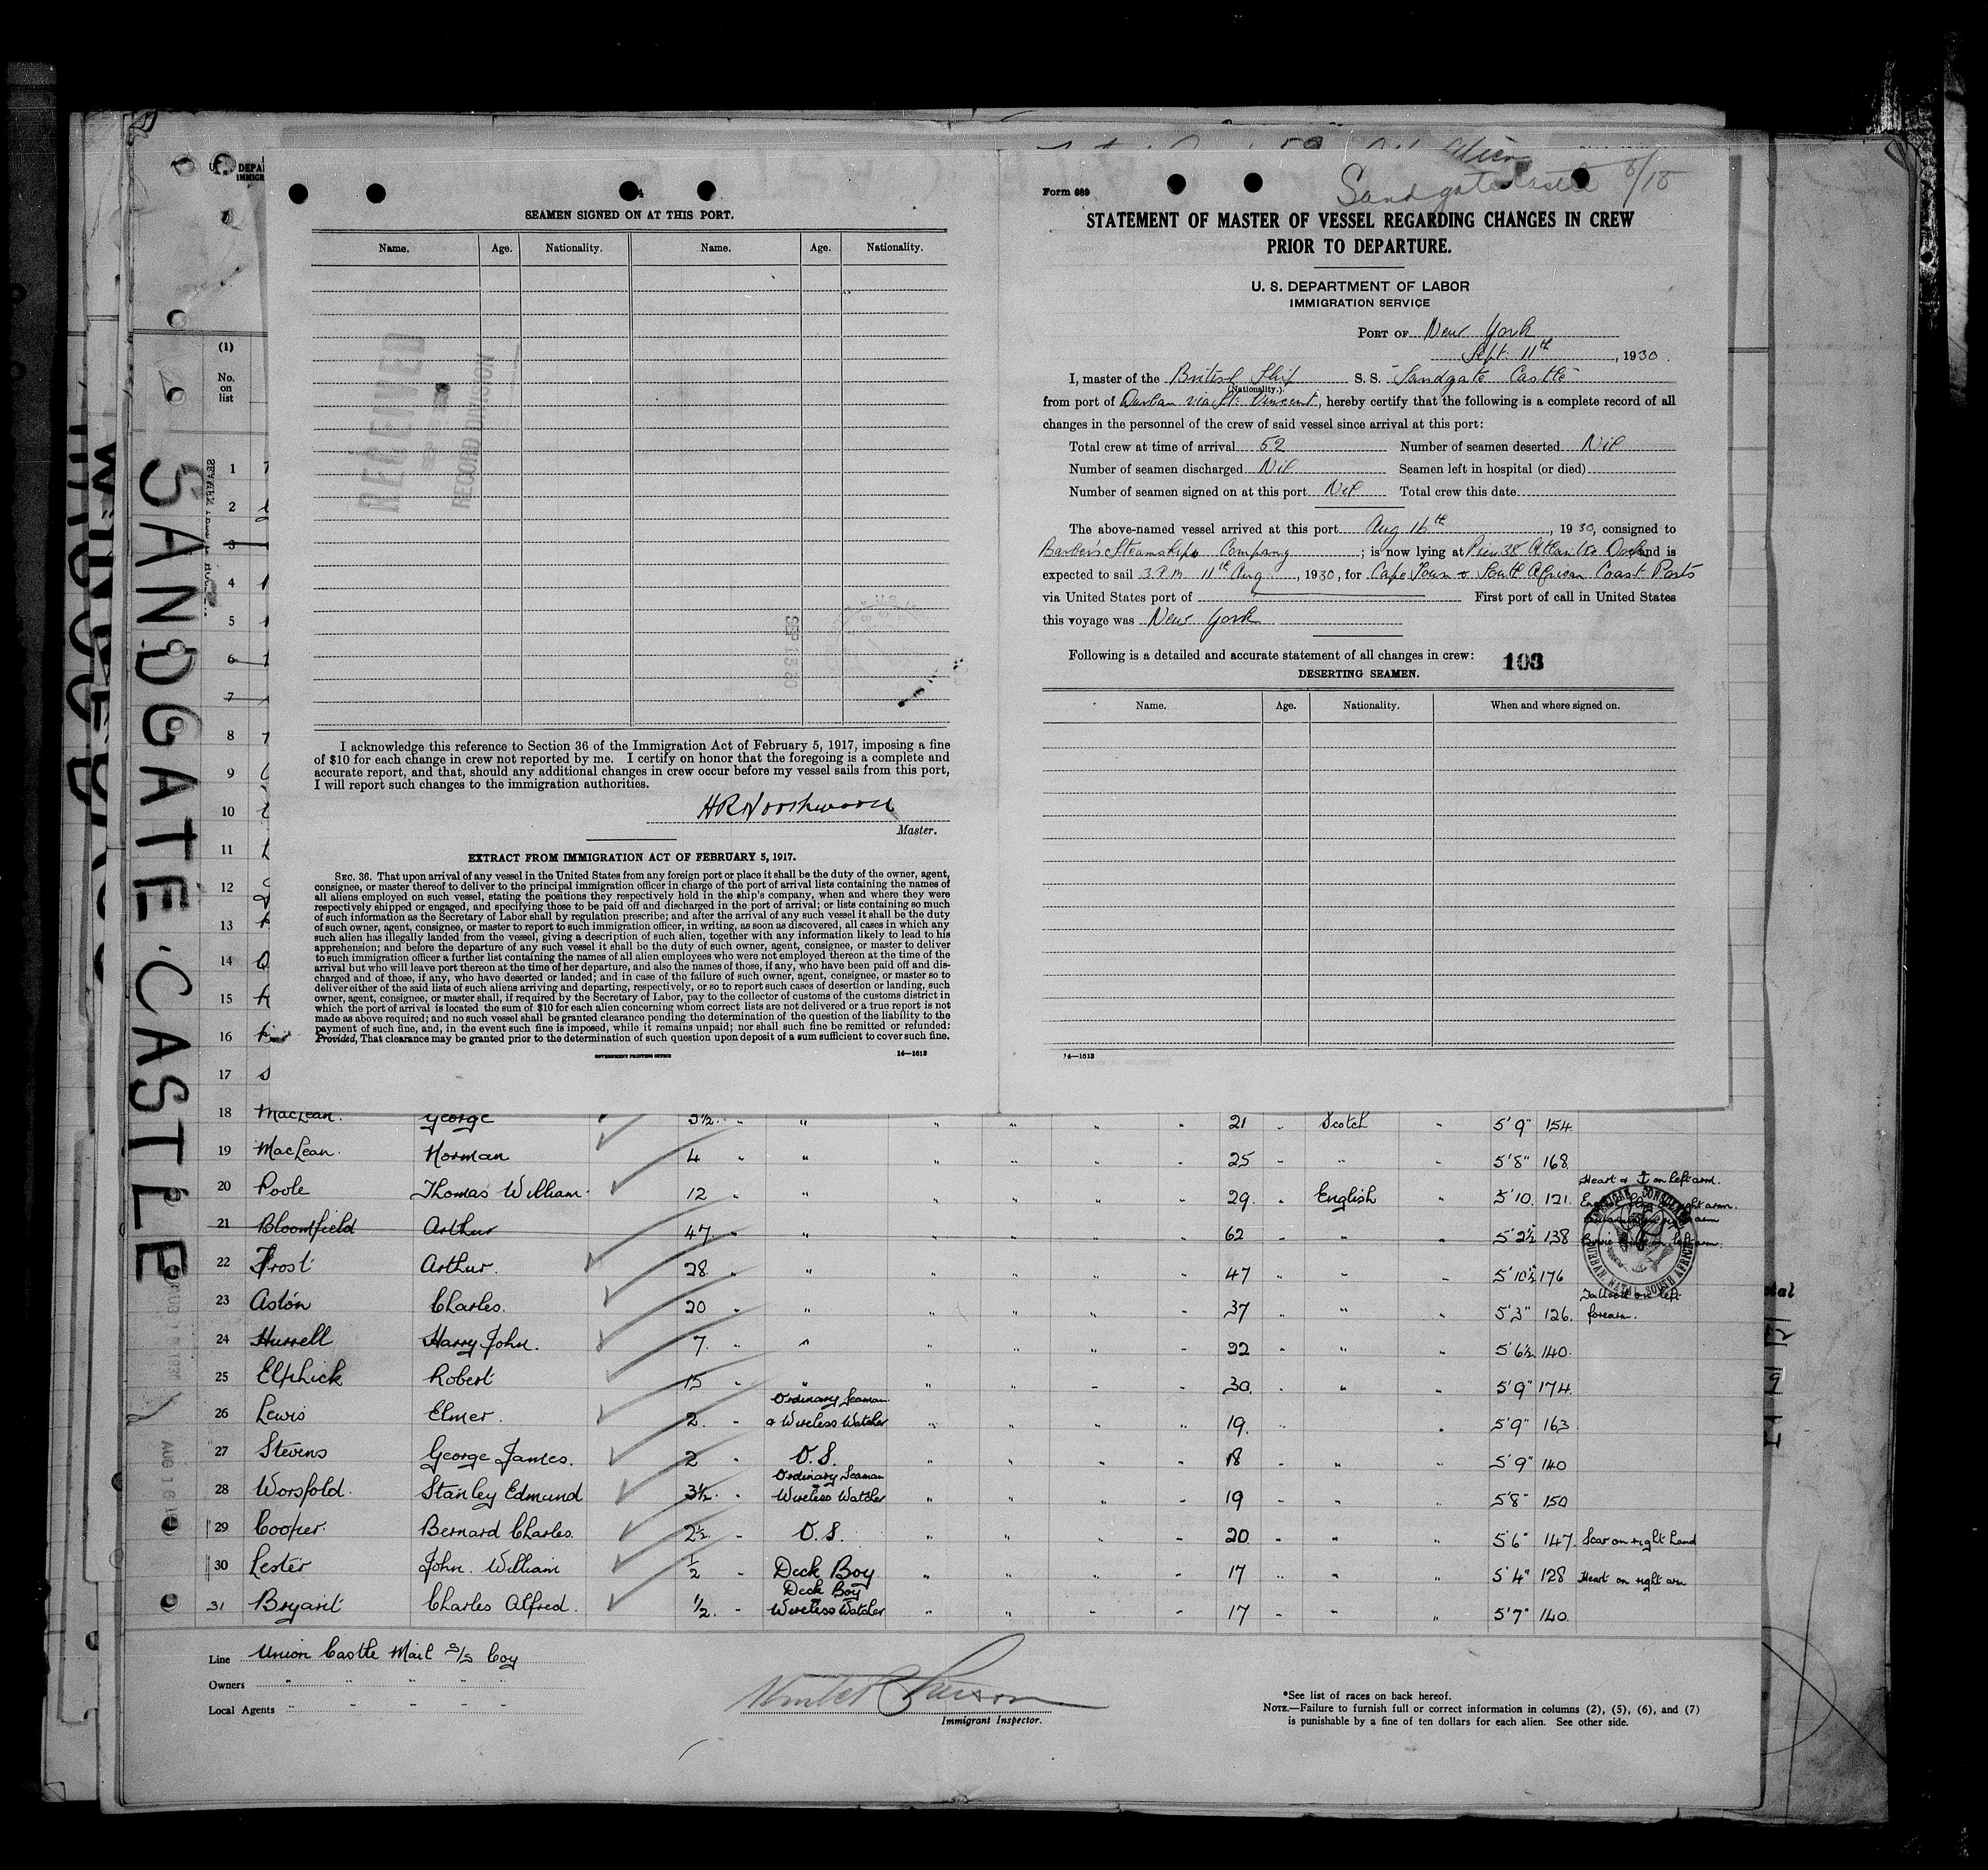 SANDGATE CASTLE
(1)
No.
on
list
4
SEAMEN SIGNED ON AT THIS PORT.
Name. Age. Nationality. Name. Age. Nationality.
RECEIVED
RECORD DIVISION
I acknowledge this reference to Section 36 of the Immigration Act of February 5, 1917, imposing a fine
of $10 for each change in crew not reported by me. I certify on honor that the foregoing is a complete and
accurate report, and that, should any additional changes in crew occur before my vessel sails from this port,
I will report such changes to the immigration authorities.
Master.
EXTRACT FROM IMMIGRATION ACT OF FEBRUARY 5, 1917.
SEC. 36. That upon arrival of any vessel in the United States from any foreign port or place it shall be the duty of the owner, agent,
consignee, or master thereof to deliver to the principal immigration officer in charge of the port of arrival lists containing the names of
all aliens employed on such vessel, stating the positions they respectively hold in the ship's company, when and where they were
respectively shipped or engaged, and specifying those to be paid off and discharged in the port of arrival; or lists containing so much
of such information as the Secretary of Labor shall by regulation prescribe; and after the arrival of any such vessel it shall be the duty
of such owner, agent, consignee, or master to report to such immigration officer, in writing, as soon as discovered, all cases in which any
such alien has illegally landed from the vessel, giving a description of such alien, together with any information likely to lead to his
apprehension; and before the departure of any such vessel it shall be the duty of such owner, agent, consignee, or master to deliver
to such immigration officer a further list containing the names of all alien employees who were not employed thereon at the time of the
arrival but who will leave port thereon at the time of her departure, and also the names of those, if any, who have been paid off and dis-
charged and of those, if any, who have deserted or landed; and in case of the failure of such owner, agent, consignee, or master so to
deliver either of the said lists of such aliens arriving and departing, respectively, or so to report such cases of desertion or landing, such
owner, agent, consignee, or master shall, if required by the Secretary of Labor, pay to the collector of customs of the customs district in
which the port of arrival is located the sum of $10 for each alien concerning whom correct lists are not delivered or a true report is not
made as above required; and no such vessel shall be granted clearance pending the determination of the question of the liability to the
payment of such fine, and, in the event such fine is imposed, while it remains unpaid; nor shall such fine be remitted or refunded:
Provided, That clearance may be granted prior to the determination of such question upon deposit of a sum sufficient to cover such fine.
GOVERNMENT PRINTING OFFICE 14—1613
Sandgate Castle
Form 689
STATEMENT OF MASTER OF VESSEL REGARDING CHANGES IN CREW
PRIOR TO DEPARTURE.
U. S. DEPARTMENT OF LABOR
IMMIGRATION SERVICE
PORT OF New York
Sept. 11th, 1930.
I, master of the British Ship S. S. "Sandgate Castle"
(Nationality.)
from port of Durban via St. Vincent, hereby certify that the following is a complete record of all
changes in the personnel of the crew of said vessel since arrival at this port:
Total crew at time of arrival 52 Number of seamen deserted Nil
Number of seamen discharged Nil Seamen left in hospital (or died)
Number of seamen signed on at this port Nil Total crew this date
The above-named vessel arrived at this port Aug 16th, 1930, consigned to
Barber's Steamship Company; is now lying at Pier 38 Atlantic Dock and is
expected to sail 3 P.M. 11th Aug, 1930, for Cape Town & South African Coast Ports
via United States port of First port of call in United States
this voyage was New York
Following is a detailed and accurate statement of all changes in crew: 103
DESERTING SEAMEN.
Name. Age. Nationality. When and where signed on.
14—1613
1
2
3
4
5
6
7
8
9
10
11
12
13
14
15
16
17
18 MacLean. George 3½ " " " " " " 21 " Scotch " 5'9" 154
19 MacLean. Norman 4 " " " " " " 25 " " " 5'8" 168
20 Poole Thomas William 12 " " " " " " 29 " English " 5'10 121. Heart & on left arm.
21 Bloomfield Arthur 47 " " " " " " 62 " " 5'2½ 138
22 Frost Arthur. 28 " " " " " " 47 " " " 5'10½ 176
23 Aston Charles. 20 " " " " " " 37 " " " 5'3" 126. Tattoed on left forearm.
24 Hurrell Harry John. 7 " " " " " " 22 " " " 5'6½ 140.
25 Elphick Robert 15 " " " " " " 30 " " " 5'9" 174.
26 Lewis Elmer. 2 " Ordinary Seaman & Wireless Watcher " " " " 19 " " 5'9" 163
27 Stevens George James. 2 " O.S. " " " " 18 " " " 5'9" 140
28 Worsfold. Stanley Edmund 3½ " Ordinary Seaman Wireless Watcher " " " " 19 " " " 5'8" 150
29 Cooper. Bernard Charles. 2½ " O.S. " " " " 20 " " " 5'6" 147. Scar on right hand
30 Lester John. William ½ " Deck Boy " " " " 17 " " " 5'4" 128 Heart on right arm
31 Bryant Charles Alfred. ½ " Deck Boy Wireless Watcher " " " " 17 " " " 5'7" 140.
Line Union Castle Mail S/S Coy
Owners " " " " "
Local Agents " " " " "
Immigrant Inspector.
*See list of races on back hereof.
NOTE.—Failure to furnish full or correct information in columns (2), (5), (6), and (7)
is punishable by a fine of ten dollars for each alien. See other side.